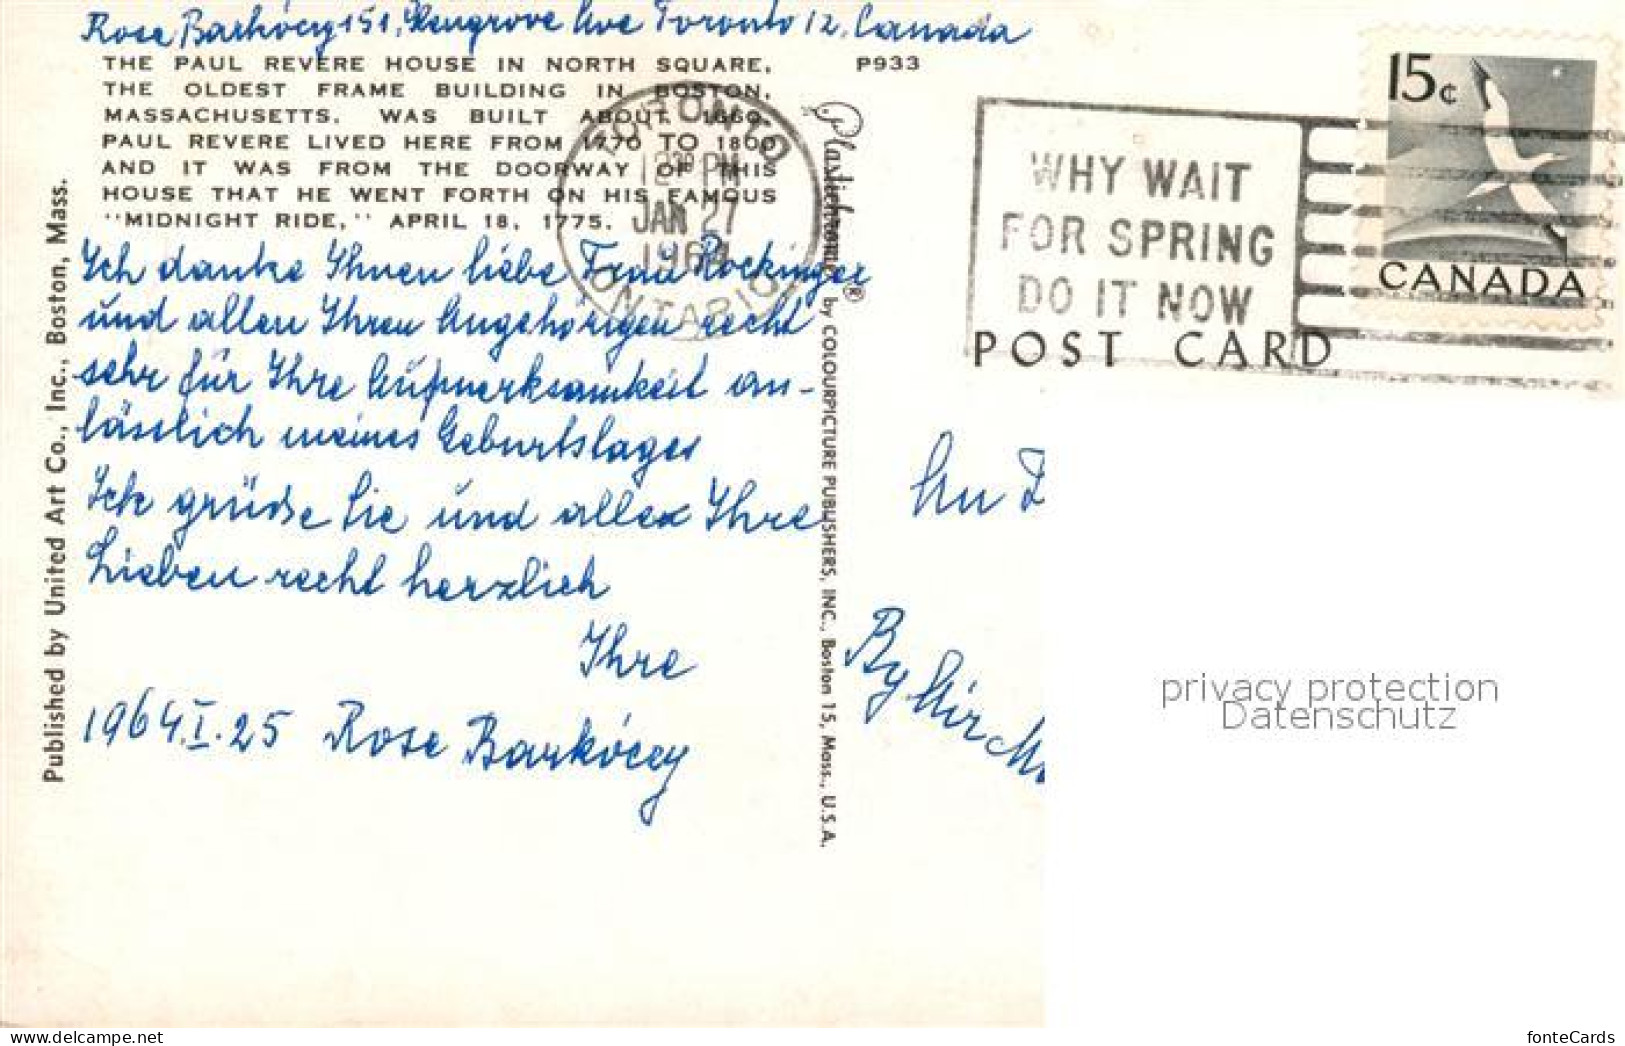 Rose Barkóczy 151, Glengrove Ave Toronto 12, Canada
THE PAUL REVERE HOUSE IN NORTH SQUARE,
THE OLDEST FRAME BUILDING IN BOSTON,
MASSACHUSETTS, WAS BUILT ABOUT 1660.
PAUL REVERE LIVED HERE FROM 1770 TO 1800
AND IT WAS FROM THE DOORWAY OF THIS
HOUSE THAT HE WENT FORTH ON HIS FAMOUS
"MIDNIGHT RIDE," APRIL 18, 1775.
P933
TORONTO
12 30 PM
JAN 27
1964
ONTARIO
WHY WAIT
FOR SPRING
DO IT NOW
15c
CANADA
POST CARD
Ich danke Ihnen liebe Frau Rockinger
und allen Ihren Angehörigen recht
sehr für Ihre Aufmerksamkeit an-
lässlich meines Geburtstages
Ich grüsse Sie und allen Ihre
Lieben recht herzlich
Ihre
1964.I.25 Rose Barkóczy
Published by United Art Co., Inc., Boston, Mass.
Plastichrome® by COLOURPICTURE PUBLISHERS, INC., Boston 15, Mass., U.S.A.
An
By Air
privacy protection
Datenschutz
fonteCards